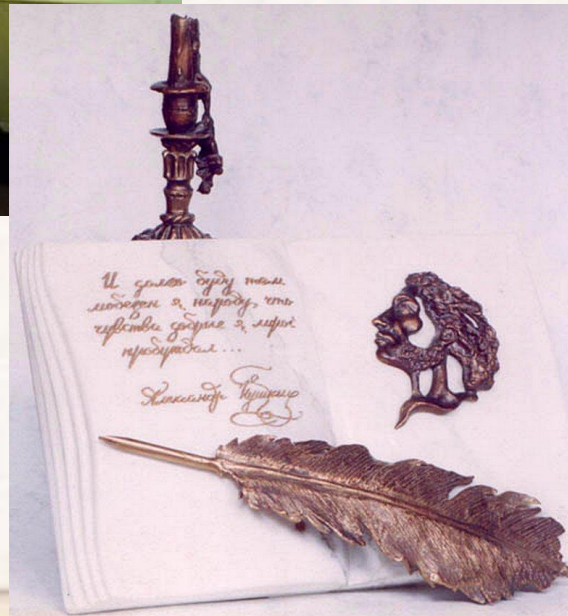 И долго буду тем
любезен я народу, что
чувства добрые я лирой
пробуждал...
Александр Пушкин